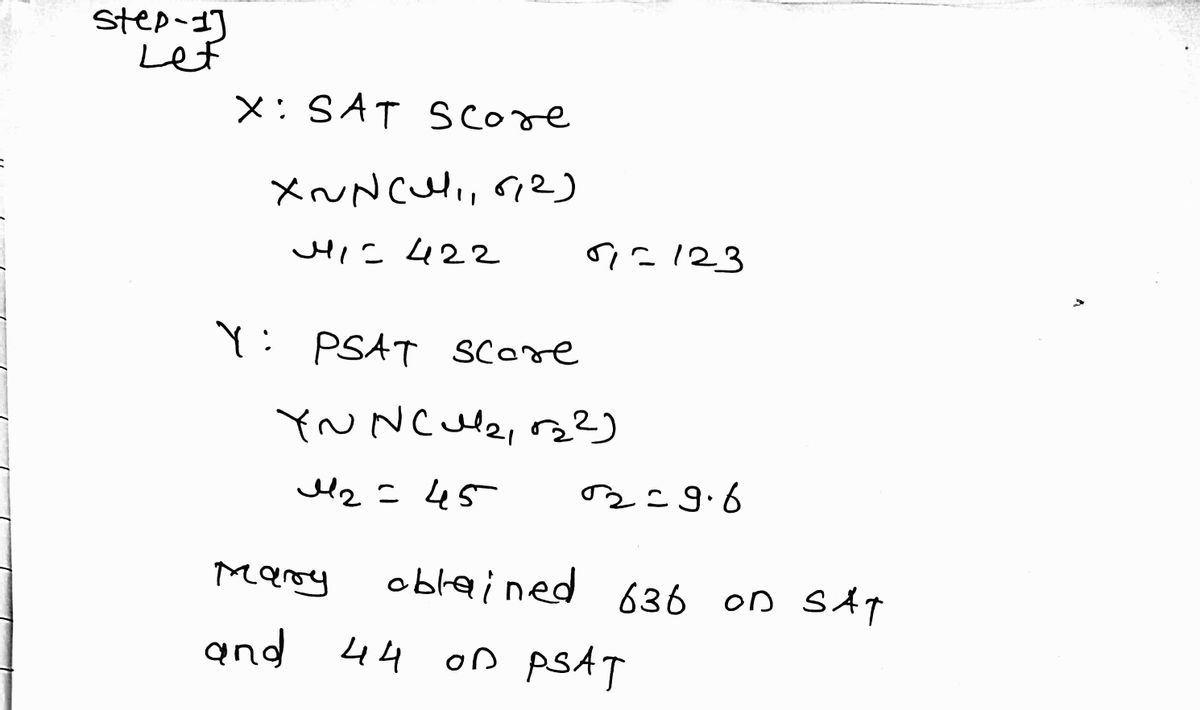 Step-1]
Let
X: SAT Score
X~N(μ₁, σ₁2)
μ₁ = 422 σ₁ = 123
Y: PSAT score
Y~N(μ₂, σ₂2)
μ₂ = 45 σ₂ = 9.6
Mary obtained 636 on SAT
and 44 on PSAT